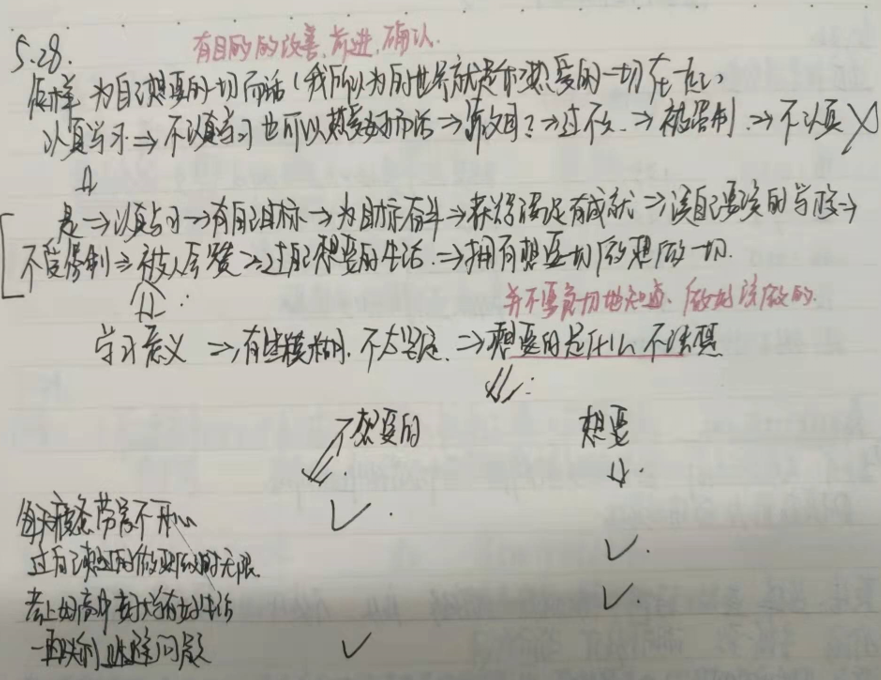 5.28.
有目的的改善,前进,确认.
怎样为自己想要的一切而活(我所以为的世界就是和想爱的一切在一起)
认真学习⇒不认真学习也可以热爱而活→ ⇒过不⇒被强制⇒不认真 ╳
是→认真学习→有自己目标→为目标奋斗→获得满足有成就→读自己要读的学校→
不受强制⇒被人 赞⇒过自己想要的生活.⇒拥有想要一切做想做一切.
并不要急切地知道.做好该做的.
学习意义⇒有些模糊.不太坚定.⇒想要的是什么不清楚
不想要的 想要
每天疲惫劳累不开心 ✓.
过自己想过的做 无限. ✓.
考上好高中好大学 生活 ✓.
一直 问题 ✓